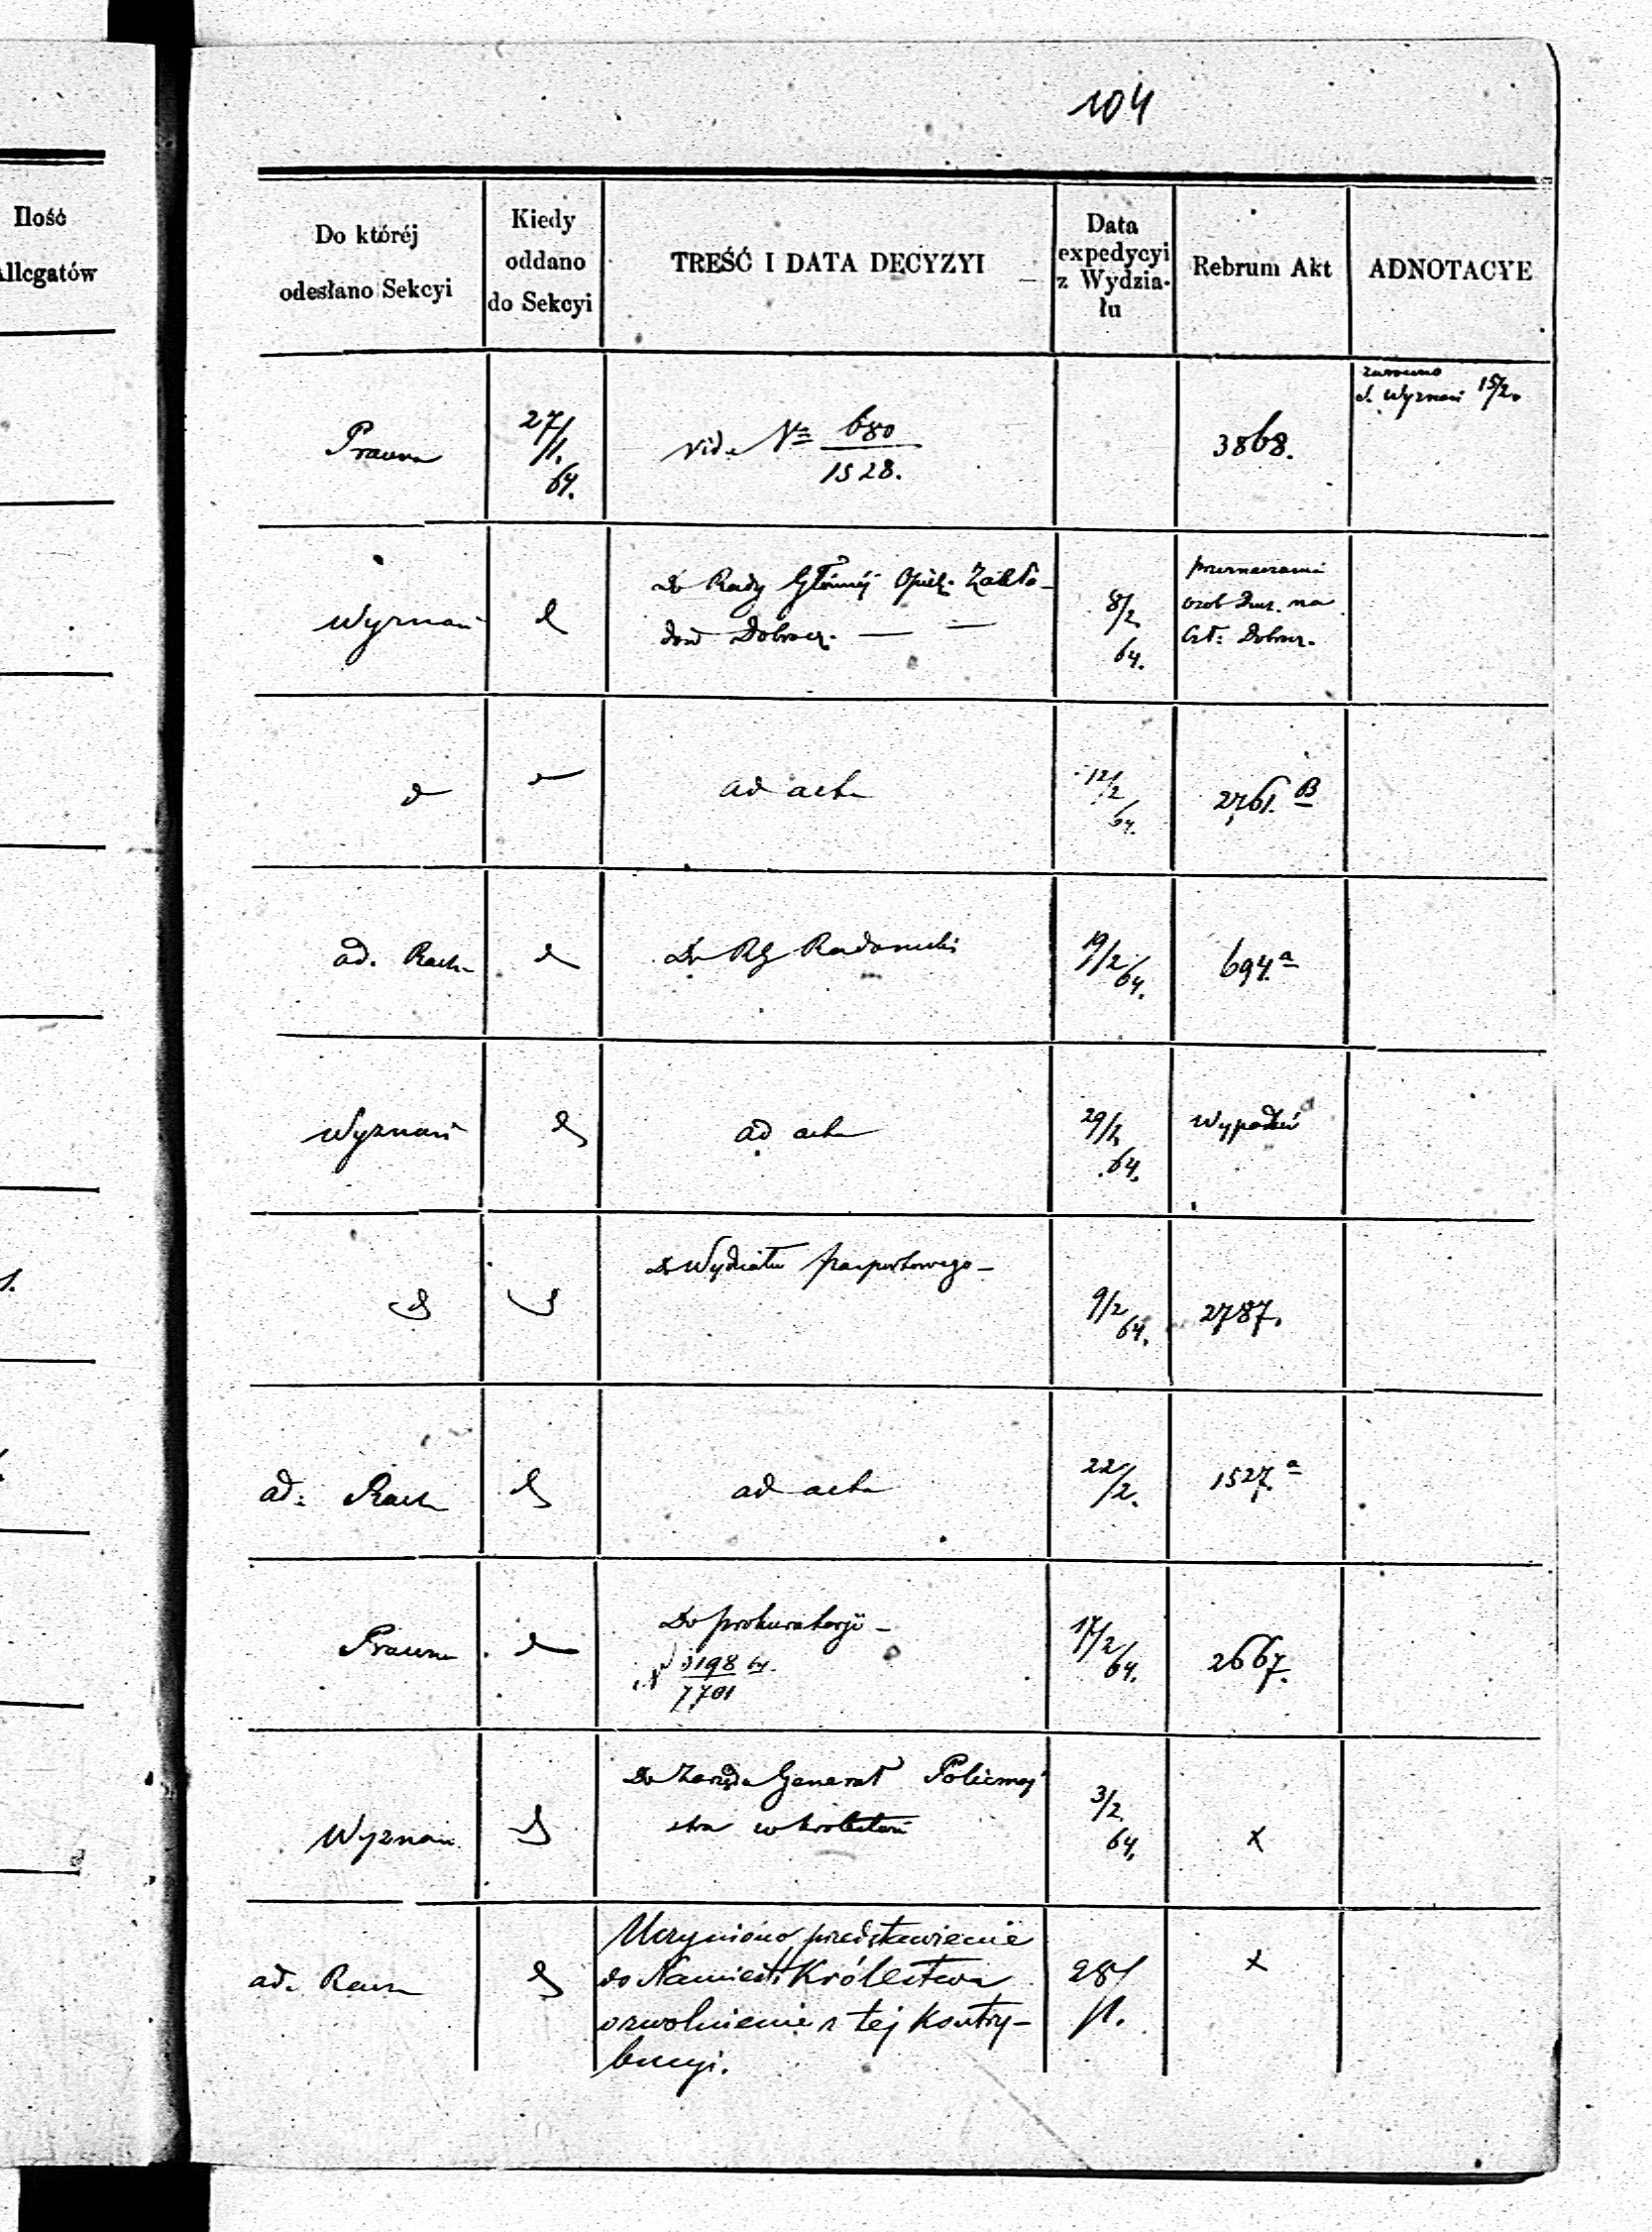 104
Ilość
Allegatów
Do któréj
odesłano Sekcyi
Kiedy
oddano
do Sekcyi
TREŚĆ I DATA DECYZYI
Data
expedycyi
z Wydzia-
łu
Rebrum Akt
ADNOTACYE
Prawna
27/1.
64.
vid. № 680
1528.
3868.
Wyznań 15/2.
Wyznań
d
Do Rady Głównéj Opiek. Zakła-
dow Dobrocz.
8/2
64.
przeznaczania
osob Duz. na
Czł: Dobrocz.
d
ad acta
12/2
64.
2761. B
ad. Rach.
d
Do RG Radomski
19/2
64.
694.a
Wyznań
d
ad acta
29/2
64.
Wypadki
d
d
Do Wydziału paszportowego
9/2
64.
2787.
ad. Rach
d
ad acta
22/2.
1527.a
Prawna
d
Do prokuratoryi
3198 64.
7701
17/2
64.
2667.
Wyznań
d
Do Zarządu Generał Policmaj
stra w Królestwie
3/2
64.
x
ad. Rach
d
Uczyniono przedstawienie
do Namiest: Królestwa
o zwolnienie z tej Kontry-
bucyi.
28/1.
x